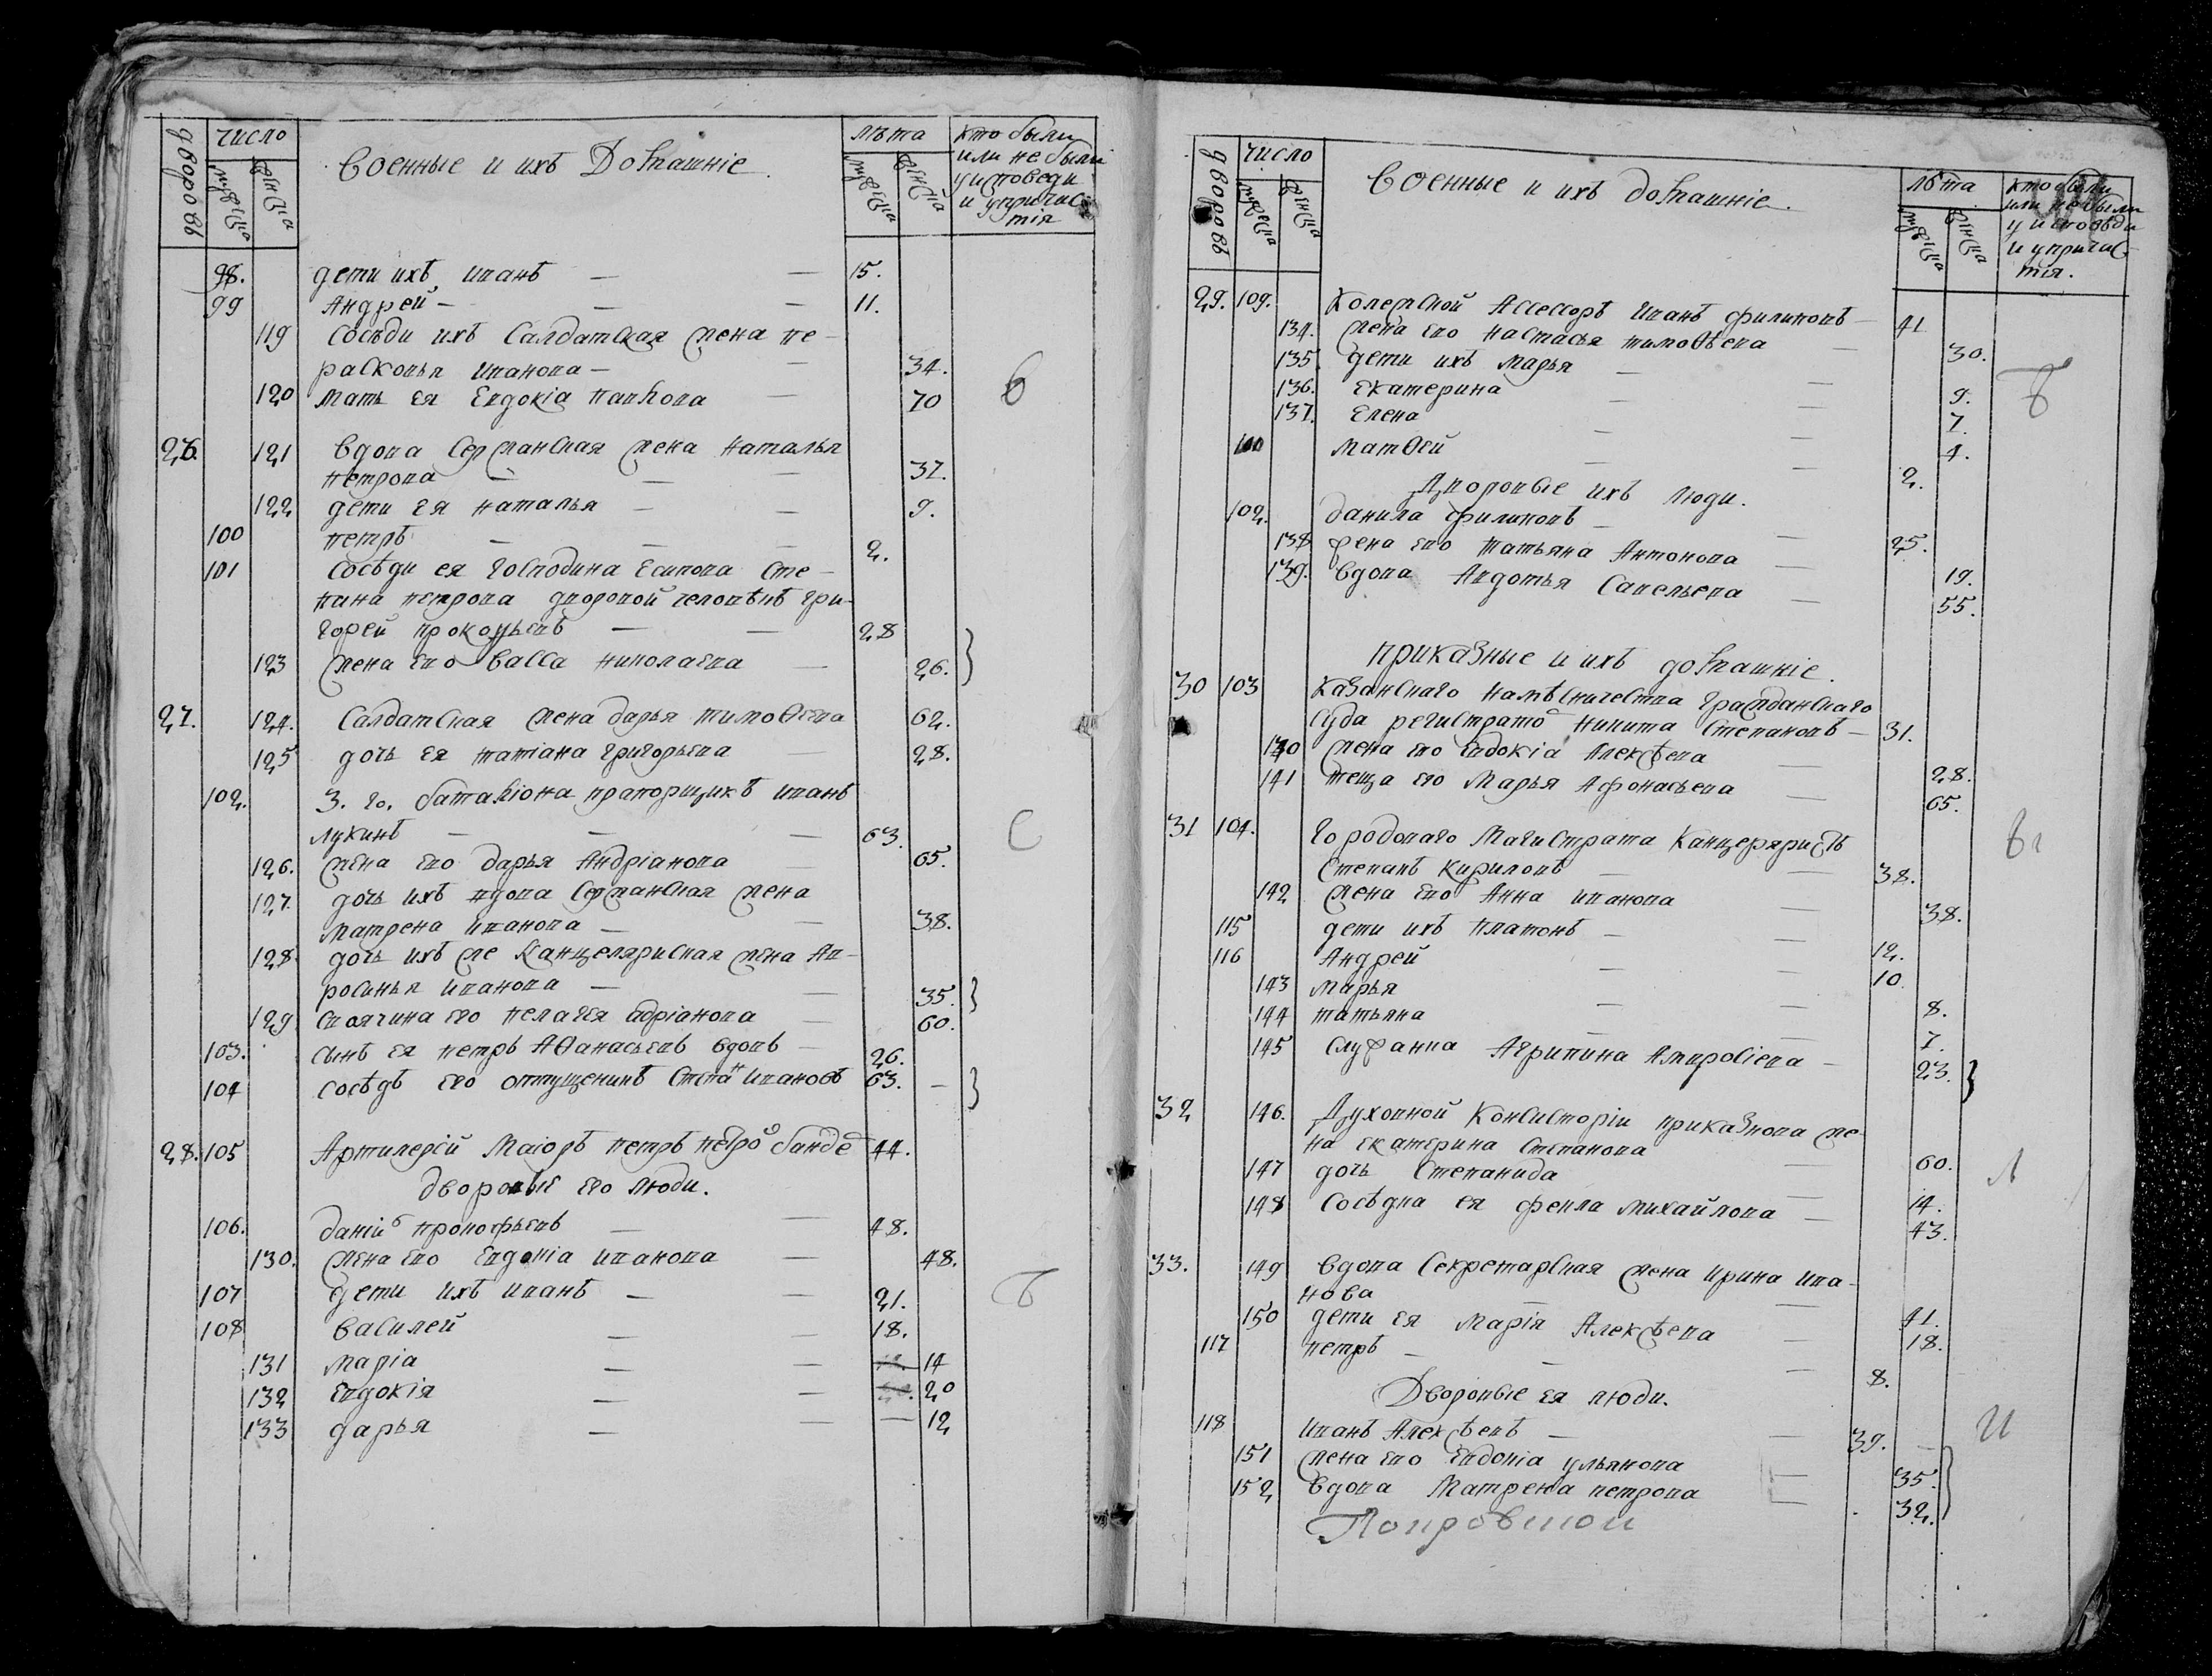 дворовъ
число
мужеска
женска
Военные и ихъ Домашніе.
лѣта
мужеска
женска
кто были
или не были
у исповеди
и у причас-
тія
98. дети ихъ, иванъ — — 15.
99 Андрей — — — 11.
119 сосѣди ихъ Салдатская жена пе-
расковья иванова — — 34.
120 мать ея Евдокіа павлова — 70
В
26. 121 вдова Сержанская жена наталья
петрова — — — 37.
122 дети ея наталья — — 9.
100 петръ — — — 2.
101 сосѣди ея Господина Есипова Сте-
пана петрова дворовой человѣкъ гри-
горей прокофьевъ — — 28
123 жена ево Васса николаева — 26.
27. 124. Салдатская жена дарья тимоѳеева 62.
125 дочь ея татіана григорьева — 28.
102. 3. го. баталіона прапорщикъ иванъ
лукинъ — — — 63.
С
126. жена ево дарья Андріанова 65.
127. дочь ихъ вдова Сержанская жена
матрена иванова — — 38.
128. дочь ихъ же Канцеляриская жена Ав-
росинья иванова — — 35.
129 своячина ево пелагея адріанова — 60.
103. сынъ ея петръ Аѳанасьевъ вдовъ — 26.
104 сосѣдъ ево отпущеникъ Степанъ Ивановъ 63. —
28. 105 Артилерій Маіоръ петръ петро 44.
дворовые ево люди.
106. даніи прокофьевъ — — 48.
130. жена ево Евдокіа иванова — 48.
107 дети ихъ иванъ — — 21.
Б
108 василей — 18.
131 маріа — — 14
132 Евдокія — — 20
133 дарья — — — 12
дворовъ
число
мужеска
женска
Военные и ихъ домашніе.
лѣта
мужеска
женска
кто были
или не были
у исповѣди
и у причас-
тія.
29. 109. Колежской Ассессоръ Иванъ филиповъ — 41
134. жена ево настасья тимоѳѣева — 30.
135. дети ихъ марья — — 9.
Б
136. Екатерина — — 7.
137. Елена — — 4.
матѳей — — 2.
Дворовые ихъ люди.
102. данила филиповъ — — 25.
138 жена ево татьяна Антонова — 19.
139. вдова Авдотья Савельева — 55.
приказные и ихъ домашніе.
30 103 Казанскаго намѣсничества гражданскаго
суда регистрато никита Степановъ — 31.
140 жена ево Евдокіа Алексѣева — 28.
141 теща ево Марья Афонасьева — 65.
31 104. Городоваго Магистрата Канцеляристъ
Степанъ Кириловъ — — 38.
142 жена ево Анна иванова — 38.
115 дети ихъ платонъ — — 12.
116 Андрей — — 10.
143 марья — — 8.
144 татьяна — 7.
145 служанка Агрипина Амвросіева — 23.
32 146. Духовной Консисторіи приказнова же-
на екатерина Степанова — 60.
147 дочь Степанида — 14.
Л
148 сосѣдка ея фекла михайлова — 43.
33. 149 вдова Секретарская жена ирина ива-
нова — — 41.
150 дети ея Марія Алексѣева — 18.
117 петръ — — — 8.
Дворовые ея люди.
118 иванъ Алексѣевъ — — 39. —
И
151 жена ево Евдокіа ульянова — 35.
152 вдова Матрена петрова — 32.